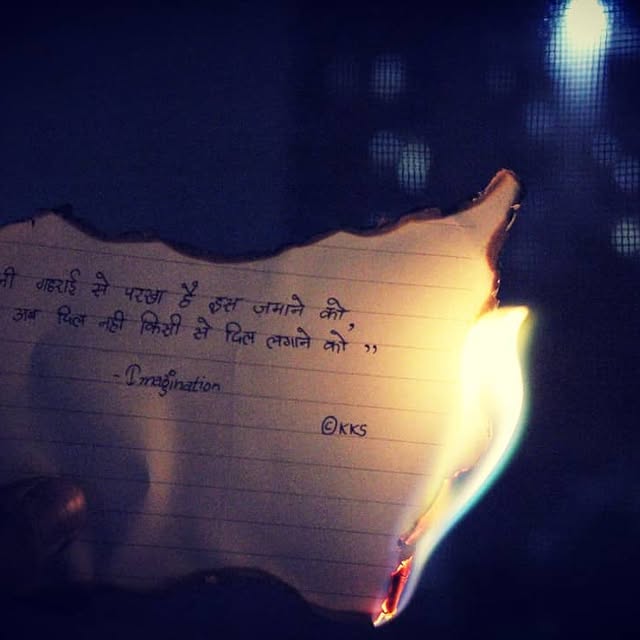 गहराई से परखा है इस ज़माने को,
अब दिल नही किसी से दिल लगाने को”
- Imagination
©KKS